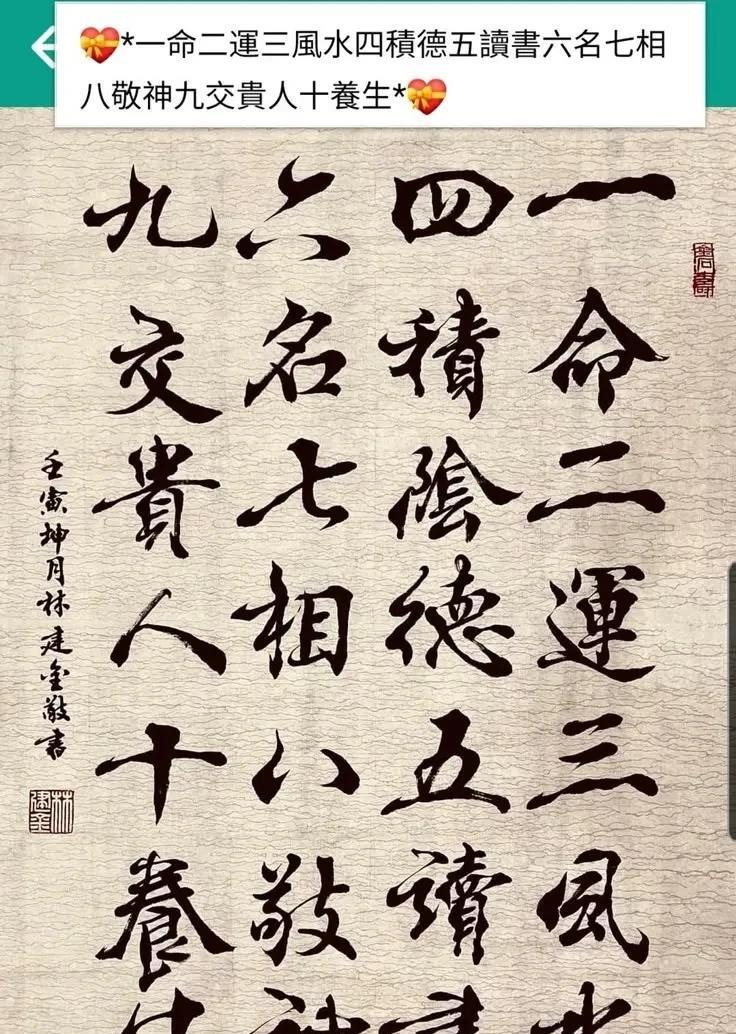 💝*一命二運三風水四積德五讀書六名七相
八敬神九交貴人十養生*💝
一命二運三風水
四積陰德五讀書
六名七相八敬神
九交貴人十養生
壬寅坤月林建金敬書
林建金